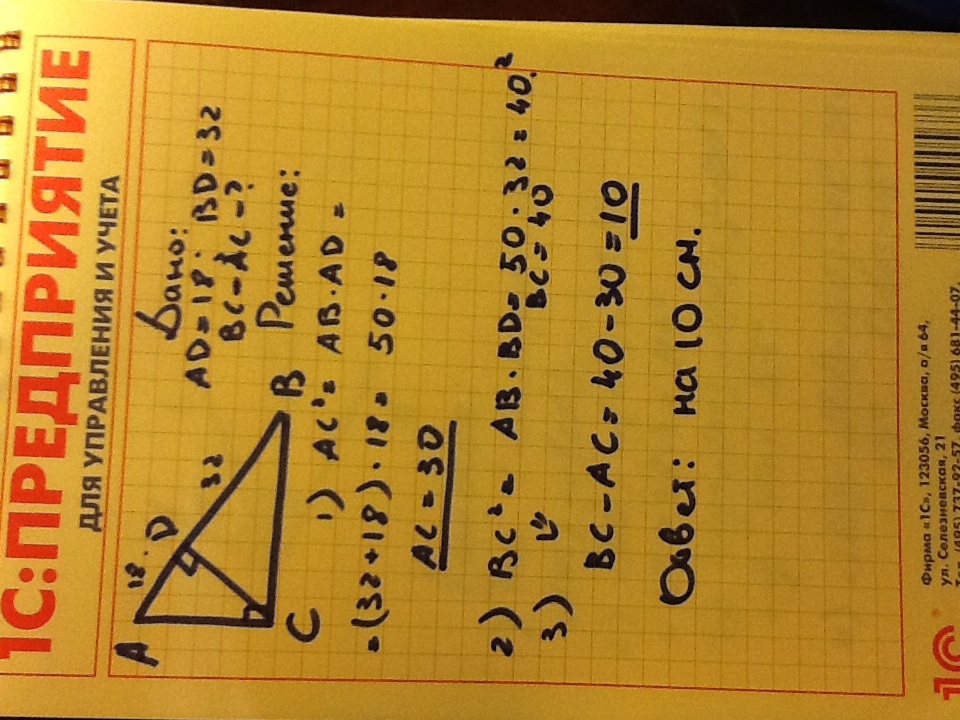 1С:ПРЕДПРИЯТИЕ
ДЛЯ УПРАВЛЕНИЯ И УЧЕТА
Дано:
AD = 18. BD = 32
BC - AC - ?
Решение:
A
18.
D
32
B
C
1) AC² = AB · AD =
= (32 + 18) · 18 = 50 · 18
AC = 30
2) BC² = AB · BD = 50 · 32 = 40.²
3) BC = 40
BC - AC = 40 - 30 = 10
Ответ: на 10 см.
1С
Фирма «1С», 123056, Москва, а/я 64,
ул. Селезневская, 21
(495) 737-92-57, факс (495) 681-44-07,